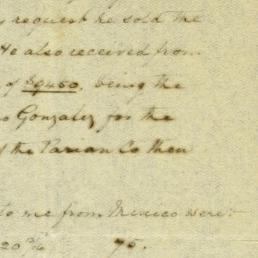 request he sold the
He also received from
of $9450, being the
Gonzalez for the
the Parian Co then
to me from Mexico were:-
20 75.